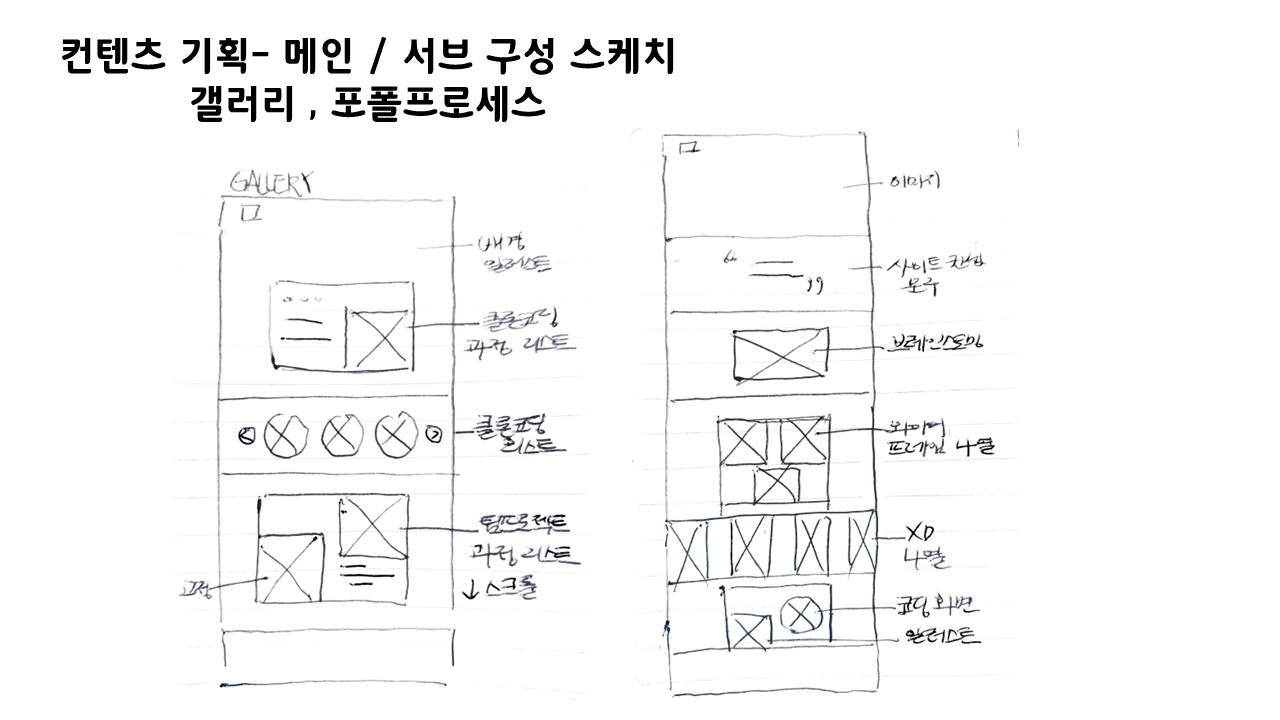 컨텐츠 기획- 메인 / 서브 구성 스케치
갤러리 , 포폴프로세스
GALLERY
배경
일러스트
클론코딩
과정 리스트
클론코딩
리스트
팀프로젝트
과정 리스트
↓ 스크롤
고정
이미지
사이트 컨셉
문구
브레인스토밍
와이어
프레임 나열
XD
나열
코딩 화면
일러스트